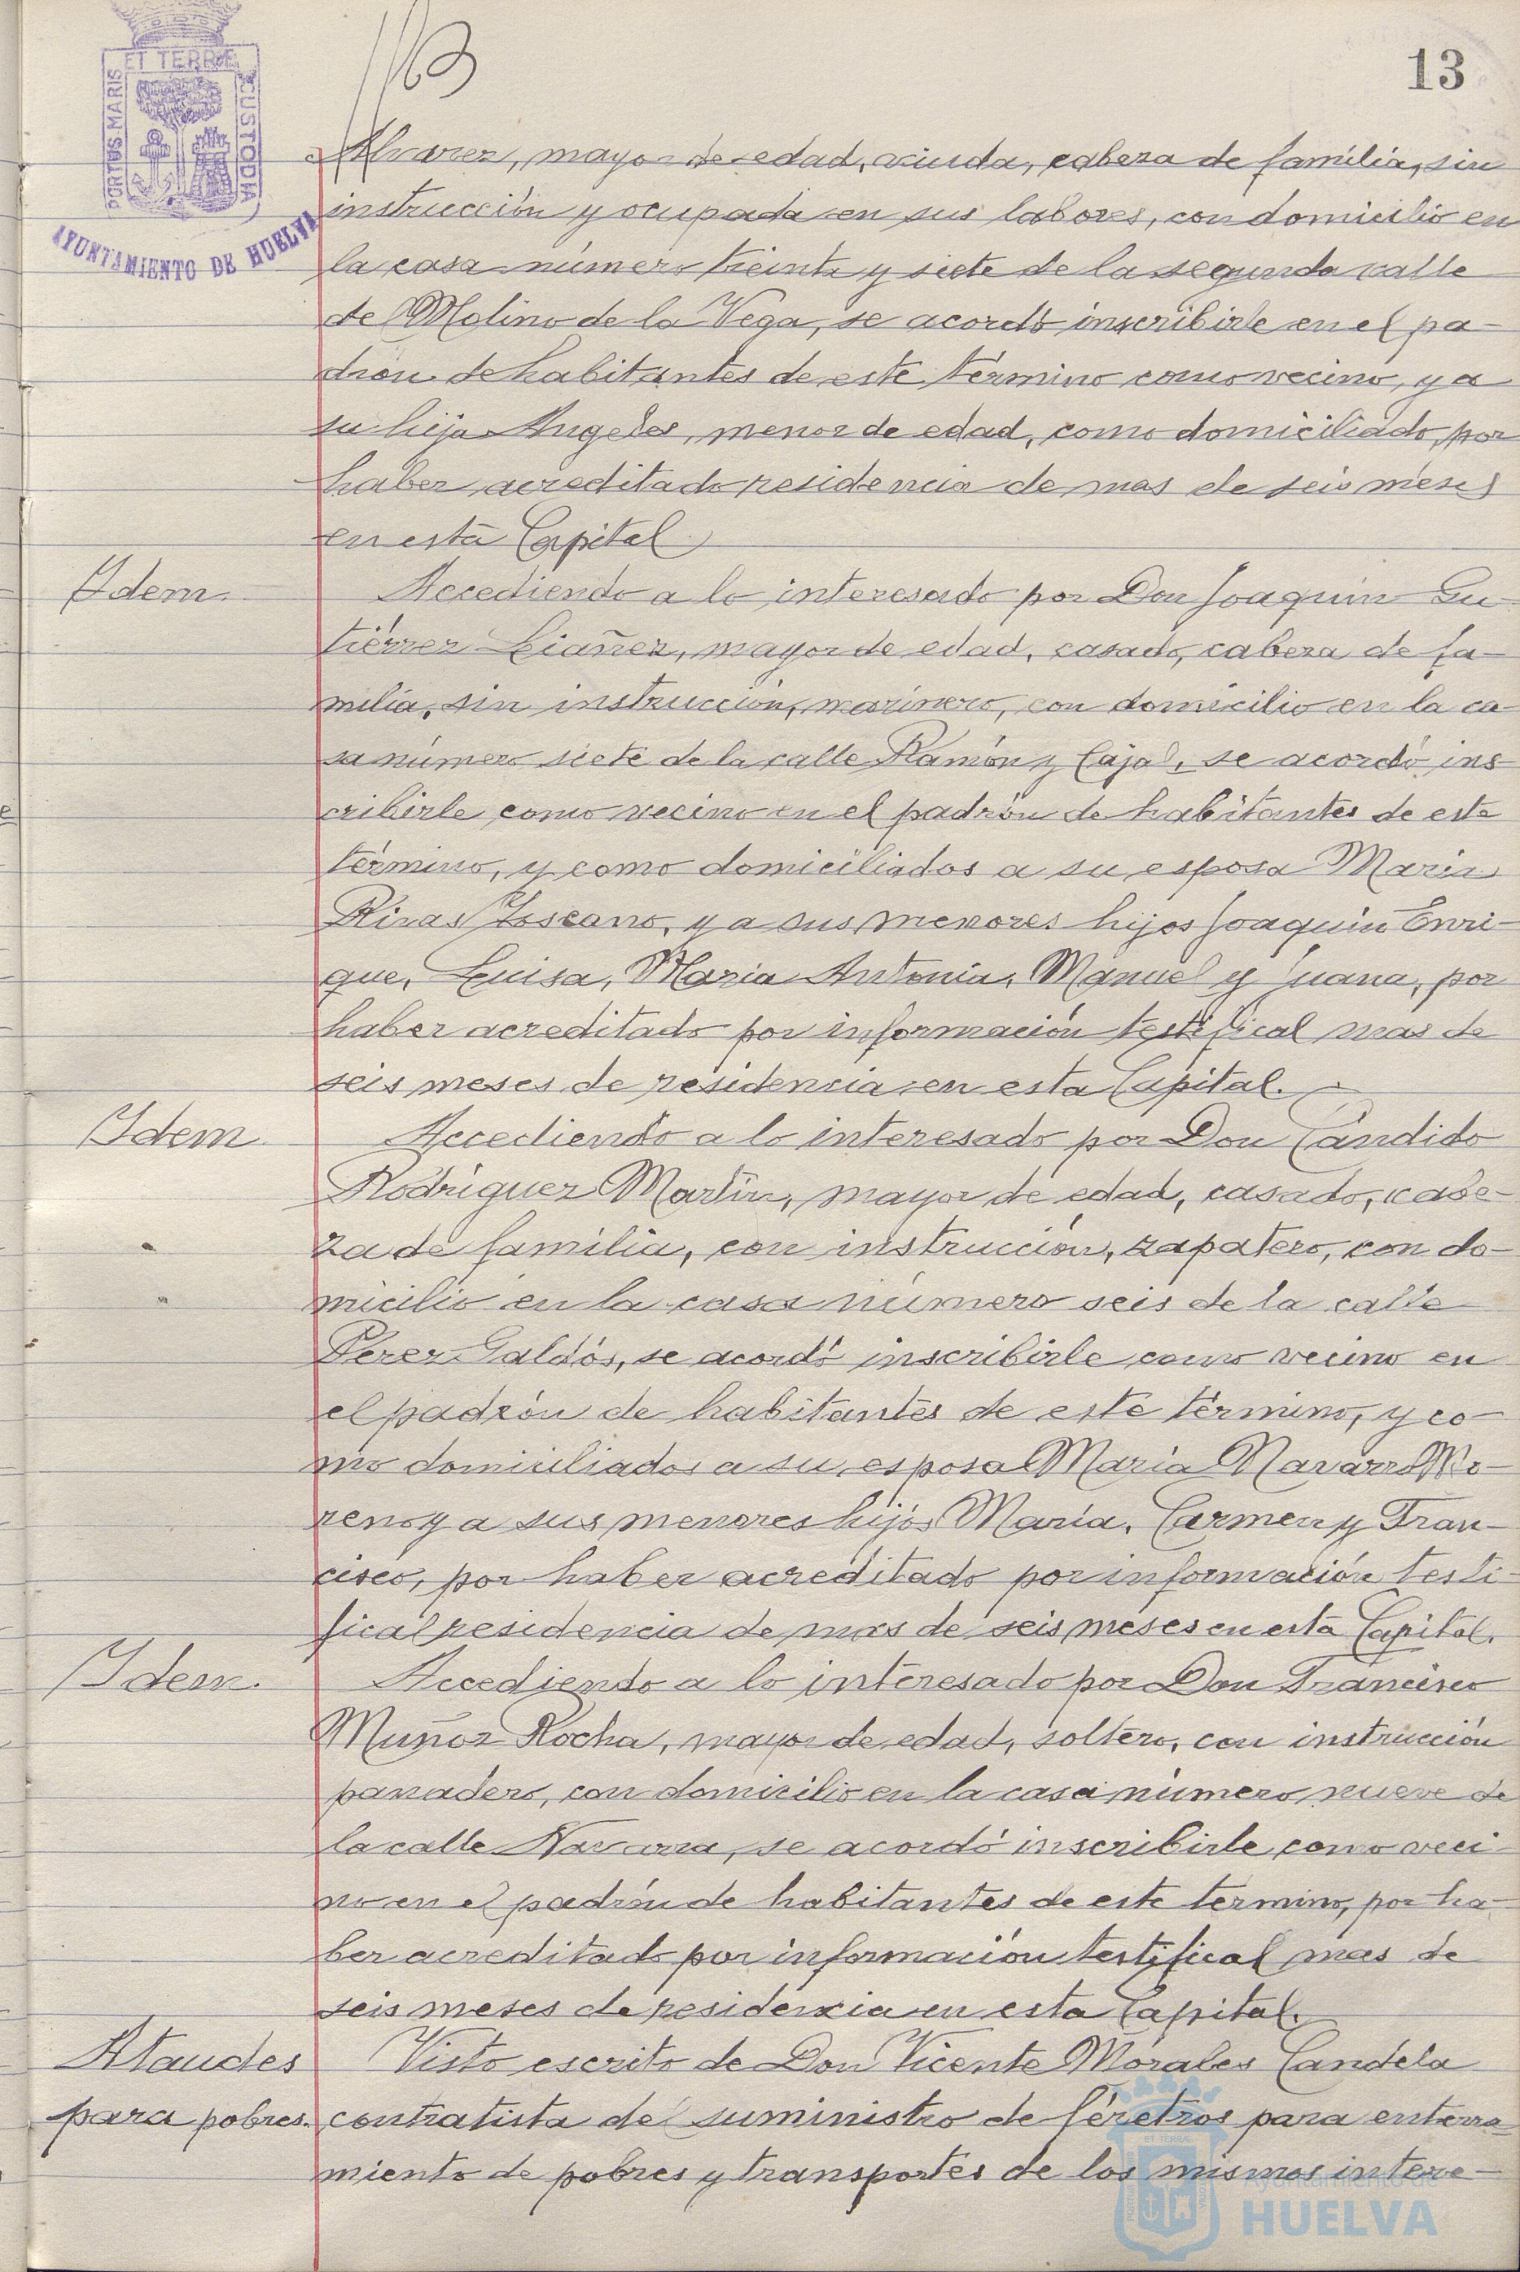 13
PORTUS MARIS ET TERRE CUSTODIA
AYUNTAMIENTO DE HUELVA
Alvarez, mayor de edad, viuda, cabeza de família, sin
instrucción y ocupada en sus labores, con domicilio en
la casa número treinta y siete de la segunda calle
de Molino de la Vega, se acordó inscribirle en el pa-
drón de habitantes de este término como vecino, y a
su hija Angeles, menor de edad, como domiciliado, por
haber acreditado residencia de mas de seis meses
en esta Capital
Idem. Accediendo a lo interesado por Don Joaquín Gu-
tiérrez Liañez, mayor de edad, casado, cabeza de fa-
milia, sin instrucción, marinero, con domicilio en la ca-
sa número siete de la calle Ramón y Cajal, se acordó ins-
cribirle como vecino en el padrón de habitantes de este
término, y como domiciliados a su esposa María
Rivas Toscano, y a sus menores hijos Joaquín Enri-
que, Luisa, Maria Antonia, Manuel y Juana, por
haber acreditado por información testifical mas de
seis meses de residencia en esta Capital.
Idem Accediendo a lo interesado por Don Cándido
Rodríguez Martín, mayor de edad, casado, cabe-
za de família, con instrucción, zapatero, con do-
micilio en la casa número seis de la calle
Pérez Galdós, se acordó inscribirle como vecino en
el padrón de habitantes de este término, y co-
mo domiciliados a su esposa María Navarro Mo-
reno y a sus menores hijos María, Carmen y Fran-
cisco, por haber acreditado por información testi-
fical residencia de mas de seis meses en esta Capital.
Idem. Accediendo a lo interesado por Don Francisco
Muñoz Rocha, mayor de edad, soltero, con instrucción
panadero, con domicilio en la casa número nueve de
la calle Navarra, se acordó inscribirle como veci-
no en el padrón de habitantes de este termino, por ha-
ber acreditado por información testifical mas de
seis meses de residencia en esta Capital.
Ataudes Visto escrito de Don Vicente Morales Candela
para pobres. contratista de suministro de féretros para enterra-
miento de pobres y transportes de los mismos intere-
Ayuntamiento de
HUELVA